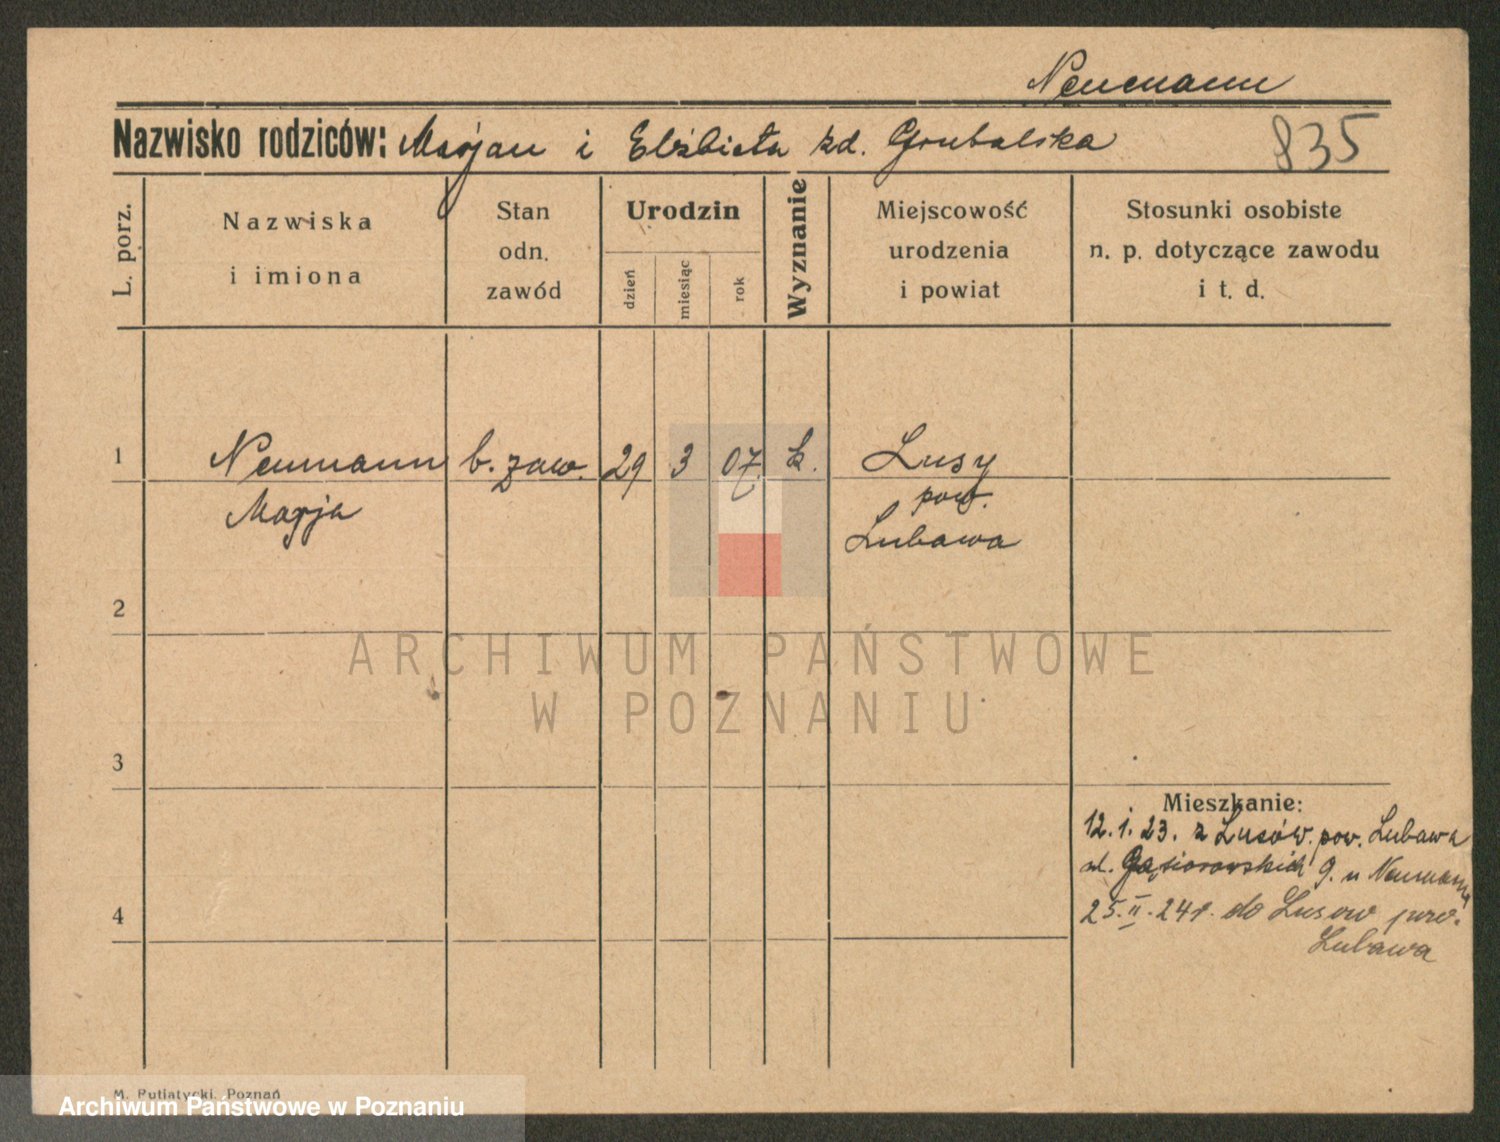 Neumann
Nazwisko rodziców: Marjan i Elżbieta zd. Grubalska
835
L. porz.
Nazwiska
i imiona
Stan
odn.
zawód
Urodzin
dzień
miesiąc
rok
Wyznanie
Miejscowość
urodzenia
i powiat
Stosunki osobiste
n. p. dotyczące zawodu
i t. d.
1
Neumann b. zaw. 29 3 07 k. Lusy
Marja
pow.
Lubawa
2
ARCHIWUM PAŃSTWOWE
W POZNANIU
3
Mieszkanie:
12. 1. 23. z Lusów pow. Lubawa
ul. Gąsiorowskich 9. u Neumann
4
25. II. 24 r. do Lusow pow.
Lubawa
M. Putiatycki, Poznań
Archiwum Państwowe w Poznaniu